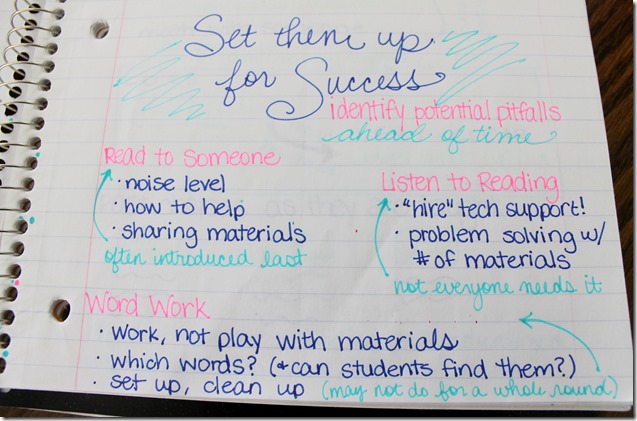 Set them up
for Success
identify potential pitfalls
ahead of time
Read to Someone
· noise level
· how to help
· sharing materials
often introduced last
Listen to Reading
· "hire" tech support!
· problem solving w/
# of materials
not everyone needs it
Word Work
· work, not play with materials
· which words? (& can students find them?)
· set up, clean up (may not do for a whole round)